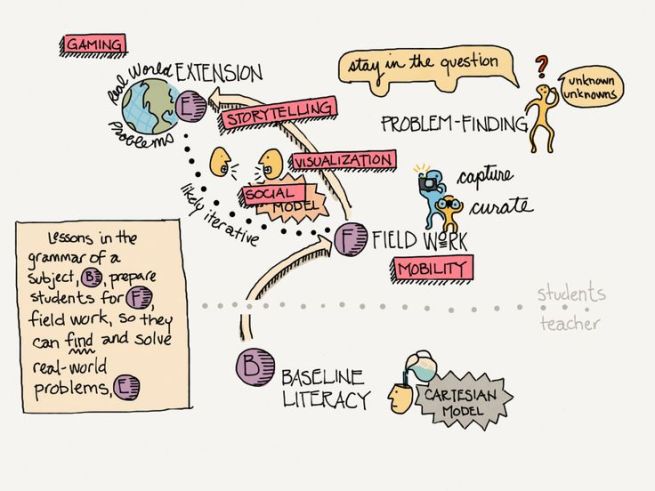 GAMING
Real World
EXTENSION
E
problems
STORYTELLING
VISUALIZATION
SOCIAL
MODEL
likely iterative
stay in the question
?
unknown
unknowns
PROBLEM-FINDING
capture
curate
F FIELD WORK
MOBILITY
students
teacher
Lessons in the
grammar of a
subject, B, prepare
students for F,
field work, so they
can find and solve
real-world
problems, E
B BASELINE
LITERACY
CARTESIAN
MODEL